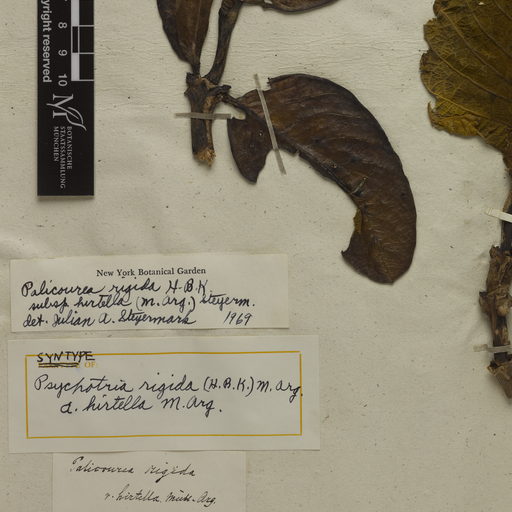 copyright reserved
8 9 10
M
BOTANISCHE
STAATSSAMMLUNG
MÜNCHEN
New York Botanical Garden
Palicourea rigida H.B.K.
subsp. hirtella (M. Arg.) Steyerm.
det. Julian A. Steyermark 1969
SYNTYPE
OF:
Psychotria rigida (H.B.K.) M. Arg.
α. hirtella M. Arg.
Palicourea rigida
v. hirtella. Müll. Arg.